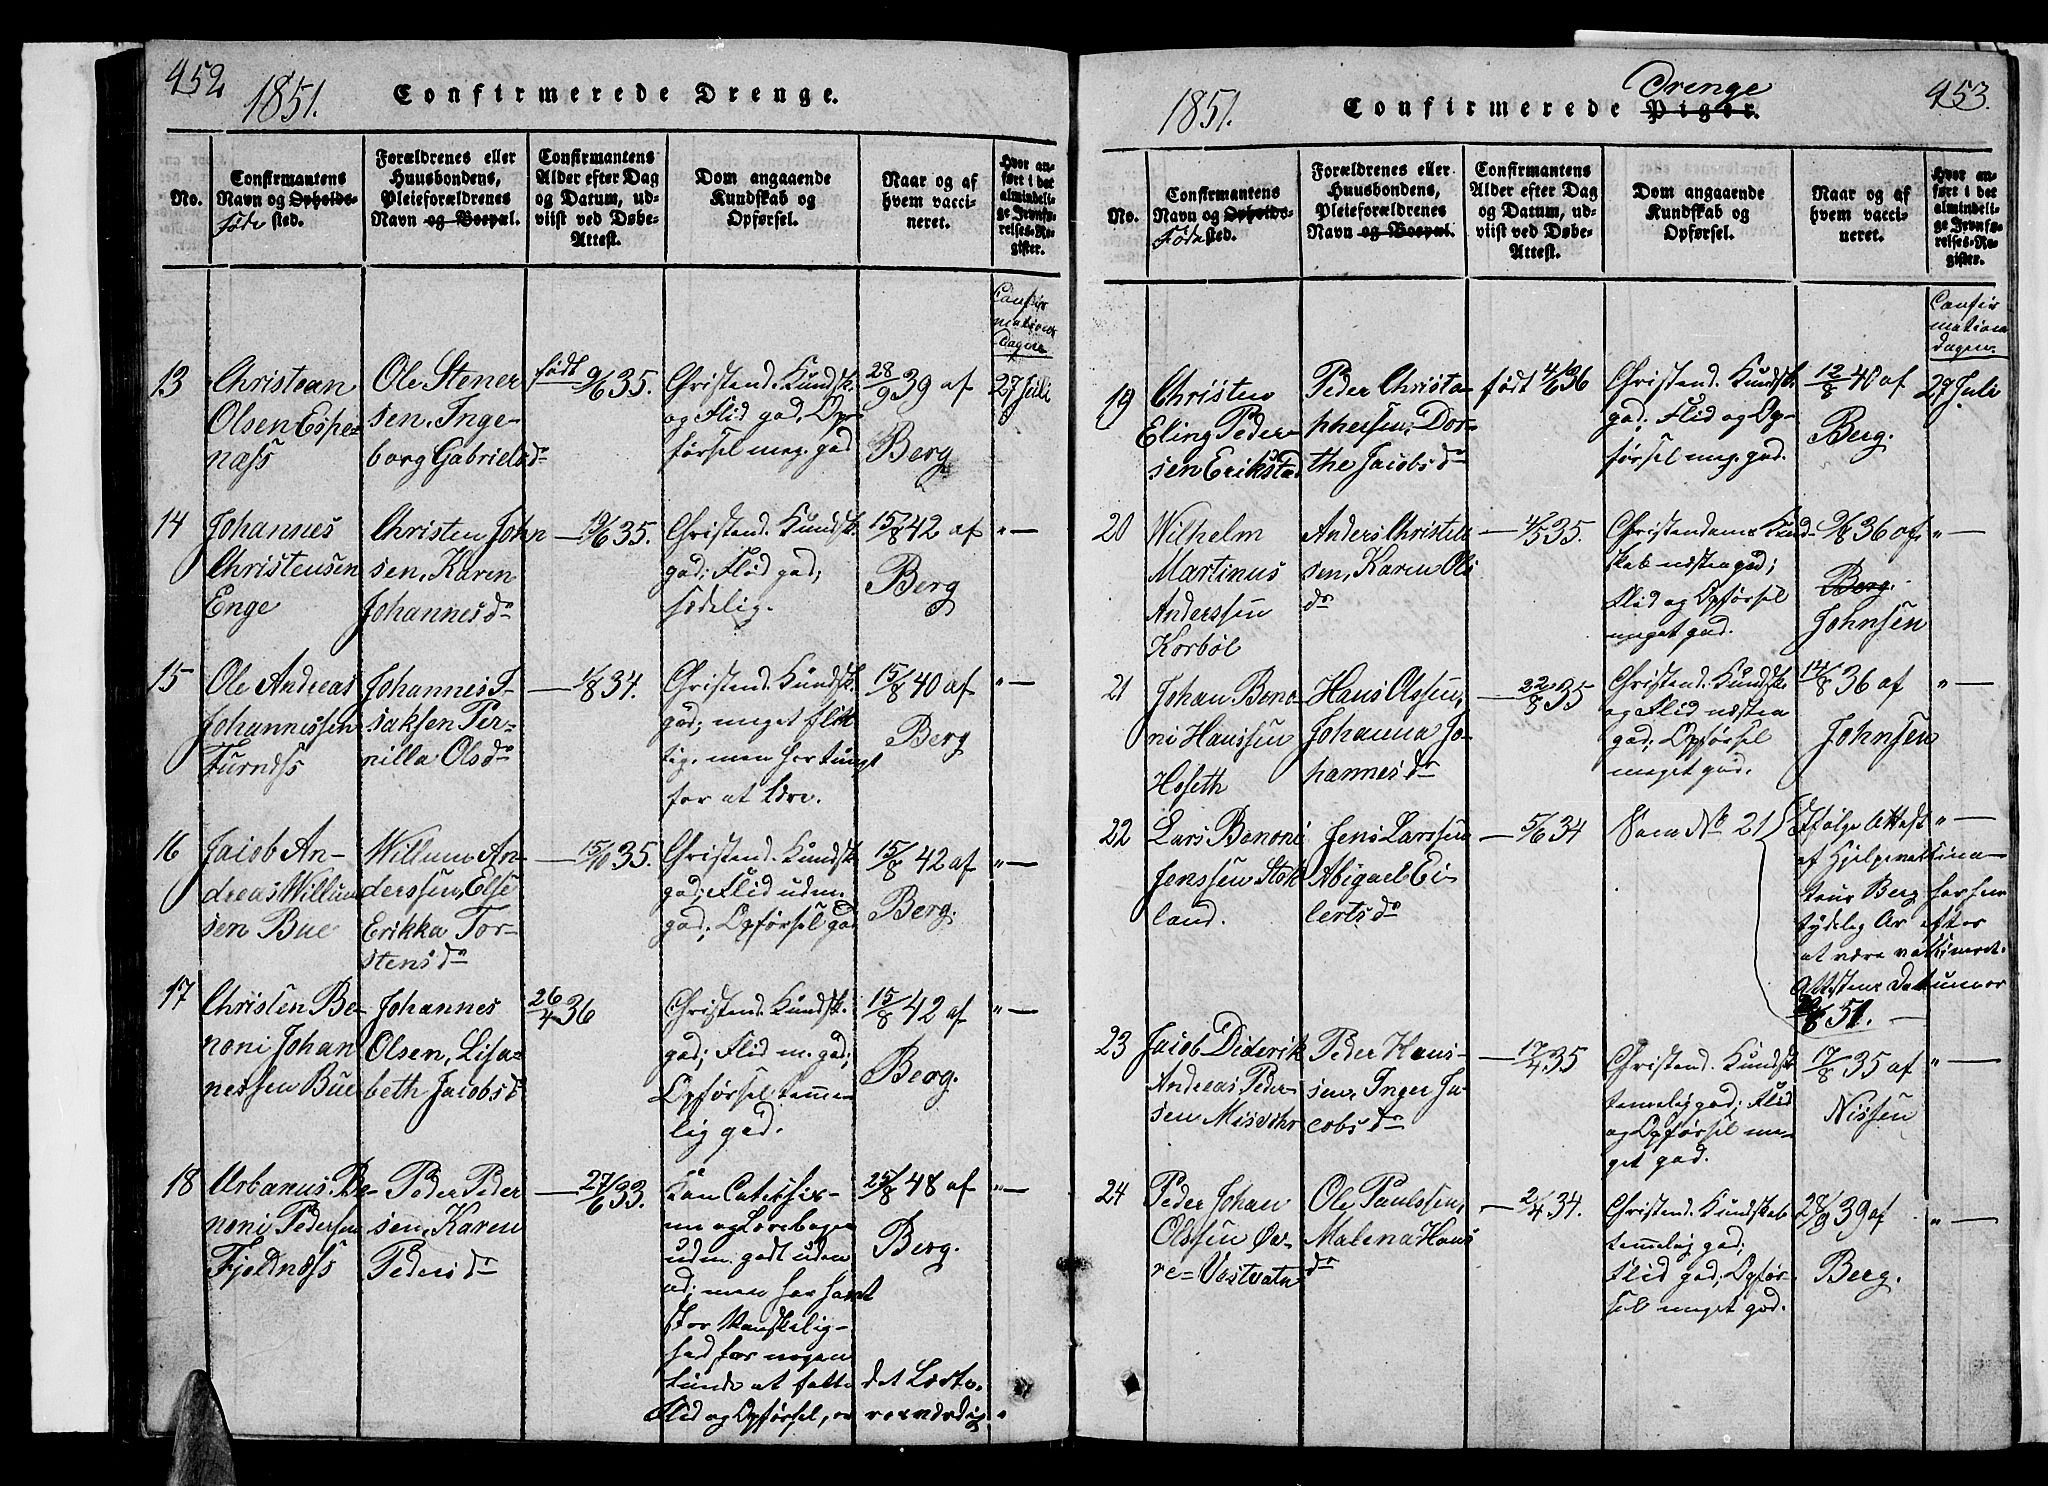 452
1851.
Confirmerede Drenge.
No.
Confirmantens
Navn og Opholds-
Føde sted.
Forældrenes eller
Huusbondens,
Pleieforældrenes
Navn og Bopæl.
Confirmantens
Alder efter Dag
og Datum, ud-
viist ved Døbe-
Attest.
Dom angaaende
Kundskab og
Opførsel.
Naar og af
hvem vacci-
neret.
Hvor an-
ført i det
almindeli-
ge Jevnfø-
relses-Re-
gister.
Confir
mations
Dagen
13
Christian
Olsen Espe-
næss
Ole Stener
sen, Inge-
borg Gabrielsdr
født 9/6 35.
Christend. Kundsk.
og Flid god, Op-
førsel meg. god
28/9 39 af
Berg
27 Juli
14
Johannes
Christensen
Enge
Christen John
sen, Karen
Johannesdr
— 19/6 35.
Christend. Kundsk.
god; Flid god;
sædelig.
15/8 42 af
Berg
" —
15
Ole Andreas
Johannessen
Furnæss
Johannes I-
saksen Per-
nilla Olsdr
— 1/8 34.
Christend. Kundsk.
god; meget flit
tig, men har tungt
for at lære.
15/8 40 af
Berg
" —
16
Jacob An-
dreas Willum
sen Bue
Willum An-
derssen, Else
Erikka Tor-
stensdr
— 15/10 35.
Christend. Kundsk
god; Flid udm.
god; Opførsel god
15/8 42 af
Berg.
" —
17
Christen Be-
noni Johan
nessen Bue
Johannes
Olsen, Lisa-
beth Jacobsdr
26/4 36
Christend. Kundsk.
god; Flid m. god;
Opførsel temme
lig god.
15/8 42 af
Berg.
" —
18
Urbanus Be-
noni Pedersen
Fjeldnæss
Peder Peder
sen, Karen
Pedersdr
— 27/6 33.
Kan Catechis-
me og Lærebogen
udm. godt uden
ad; men har havt
stor Vanskelig-
hed for nogen
lunde at fatte det Læste.
Flid og Opførsel,
25/8 48 af
Berg.
" —
453.
1851.
Confirmerede Piger.
Drenge
No.
Confirmantens
Navn og Opholds-
Føde sted.
Forældrenes eller
Huusbondens,
Pleieforældrenes
Navn og Bopæl.
Confirmantens
Alder efter Dag
og Datum, ud-
viist ved Døbe-
Attest.
Dom angaaende
Kundskab og
Opførsel.
Naar og af
hvem vacci-
neret.
Hvor an-
ført i det
almindeli-
ge Jevnfø-
relses-Re-
gister.
Confir
mations
dagen.
19
Christen
Eling Peder-
sen Erikstad
Peder Christo-
phersen, Dor-
the Jacobsdr
født
Christend. Kundsk.
god; Flid og Op-
førsel meg. god.
12/8 40 af
Berg.
27 Juli
20
Wilhelm
Martinus
Anderssen
Korbøl
Anders Christen
sen, Karen Ols
dr
— 4/5 35.
Christendoms Kund-
skab næsten god;
Flid og Opførsel
meget god.
9/8 36 af
Berg.
Johnsen
" —
21
Johan Beno
ni Hanssen
Hoseth
Hans Olssen,
Johanna Jo-
hannesdr
— 22/8 35
Christend. Kundsk.
og Flid næsten
god; Opførsel
meget god.
14/8 36 af
Johnsen
" —
22
Lars Benoni
Jenssen Stok
land.
Jens Larssen
Abigael Ei-
lertsdr
— 5/6 34
Som No 21
Ifølge Attest
af Hjelpevaccina-
teur Berg har han
tydelig Ar efter
at være vaccineret.
Attestens Datum er
/6 51. —
" —
23
Jacob Diderik
Andreas Peder-
sen Misvær
Peder Hans-
sen, Inger Ja-
cobsdr
— 17/4 35
Christend. Kundsk
temmelig god; Flid
og Opførsel me-
get god.
17/8 35 af
Nissen
" —
24
Peder Johan
Olssen Øv-
re=Vestvatn
Ole Paulssen,
Malena Hans
dr
— 2/4 34.
Christend. Kundskab
temmelig god;
Flid god; Opfør-
sel meget god.
28/9 39 af
Berg.
" —